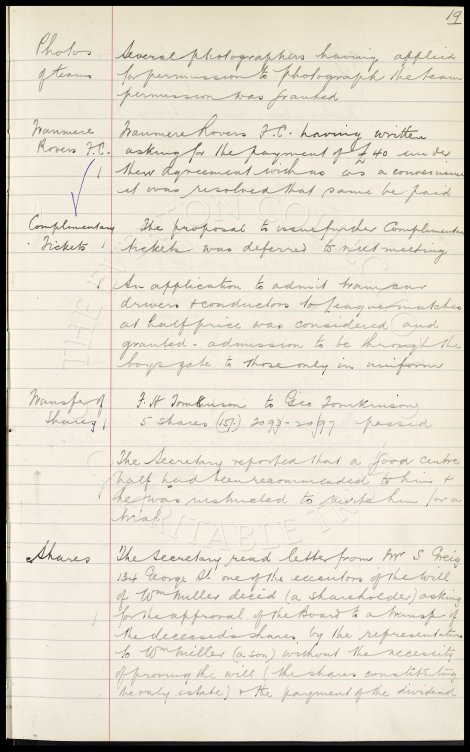 19
Photos
of teams
Several photographers having applied
for permission to photograph the team
permission was granted
Tranmere
Rovers F.C.
Tranmere Rovers F.C. having written
asking for the payment of £40 under
their agreement with us as a consequence
it was resolved that same be paid
Complimentary
Tickets
The proposal to issue further Complimentary
tickets was deferred to next meeting
An application to admit tram car
drivers & conductors to League matches
at half price was considered and
granted - admission to be through the
boys gate to those only in uniform
Transfer of
Shares
F. H Tomkinson to Geo Tomkinson
5 shares (15/-) 2093-2097 passed
The Secretary reported that a good centre
half had been recommended to him &
he was instructed to invite him for a
trial
Shares
The Secretary read letter from Mr S. Greig
134 George St. one of the executors of the will
of Wm Miller decd (a shareholder) asking
for the approval of the Board to a transfer of
the deceased's shares by the representatives
to Wm Miller (a son) without the necessity
of proving the will (the shares constituting
the only estate) & the payment of the dividend
THE EVERTON COLLECTION
CHARITABLE TRUST